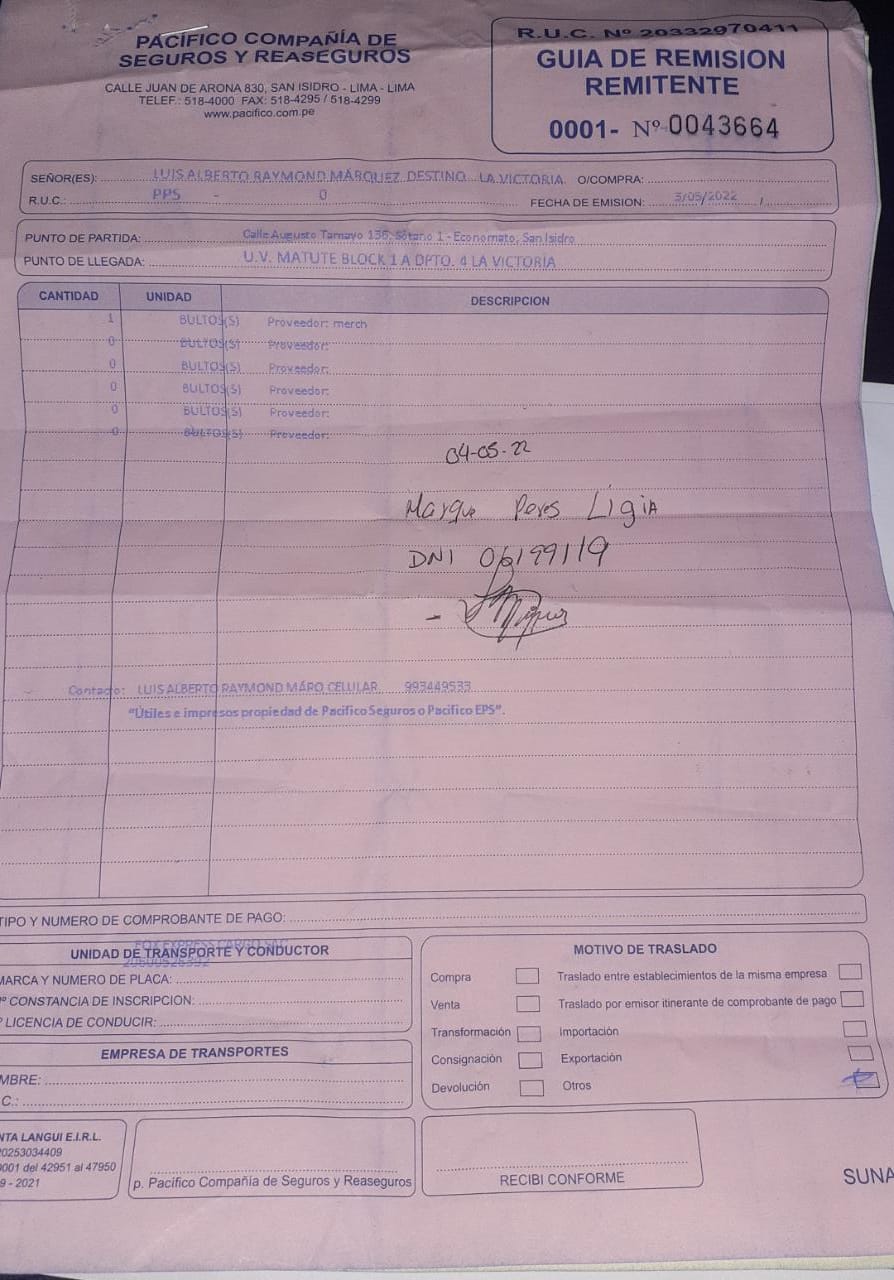 PACÍFICO COMPAÑÍA DE
SEGUROS Y REASEGUROS
CALLE JUAN DE ARONA 830, SAN ISIDRO - LIMA - LIMA
TELEF.: 518-4000 FAX: 518-4295 / 518-4299
www.pacifico.com.pe
R.U.C. Nº 20332970411
GUIA DE REMISION
REMITENTE
0001- Nº 0043664
SEÑOR(ES): LUIS ALBERTO RAYMOND MÁRQUEZ DESTINO LA VICTORIA O/COMPRA:
R.U.C.: PPS - 0 FECHA DE EMISION: 3/05/2022 /
PUNTO DE PARTIDA: Calle Augusto Tamayo 135, Sótano 1 - Economato, San Isidro
PUNTO DE LLEGADA: U.V. MATUTE BLOCK 1 A DPTO. 4 LA VICTORIA
CANTIDAD UNIDAD DESCRIPCION
1 BULTOS(S) Proveedor: merch
0 BULTOS(S) Proveedor:
0 BULTOS(S) Proveedor:
0 BULTOS(S) Proveedor:
0 BULTOS(S) Proveedor:
0 BULTOS(S) Proveedor:
04-05-22
Marque Peres Ligia
DNI 06199119
Contacto: LUIS ALBERTO RAYMOND MÁRQ CELULAR 993449533
"Útiles e impresos propiedad de Pacifico Seguros o Pacifico EPS".
TIPO Y NUMERO DE COMPROBANTE DE PAGO:
FOX EXPRESS CARGO SAC
UNIDAD DE TRANSPORTE Y CONDUCTOR
MARCA Y NUMERO DE PLACA:
º CONSTANCIA DE INSCRIPCION:
º LICENCIA DE CONDUCIR:
EMPRESA DE TRANSPORTES
MBRE:
C.:
MOTIVO DE TRASLADO
Compra Traslado entre establecimientos de la misma empresa
Venta Traslado por emisor itinerante de comprobante de pago
Transformación Importación
Consignación Exportación
Devolución Otros
NTA LANGUI E.I.R.L.
20253034409
0001 del 42951 al 47950
9 - 2021
p. Pacífico Compañía de Seguros y Reaseguros
RECIBI CONFORME
SUNA